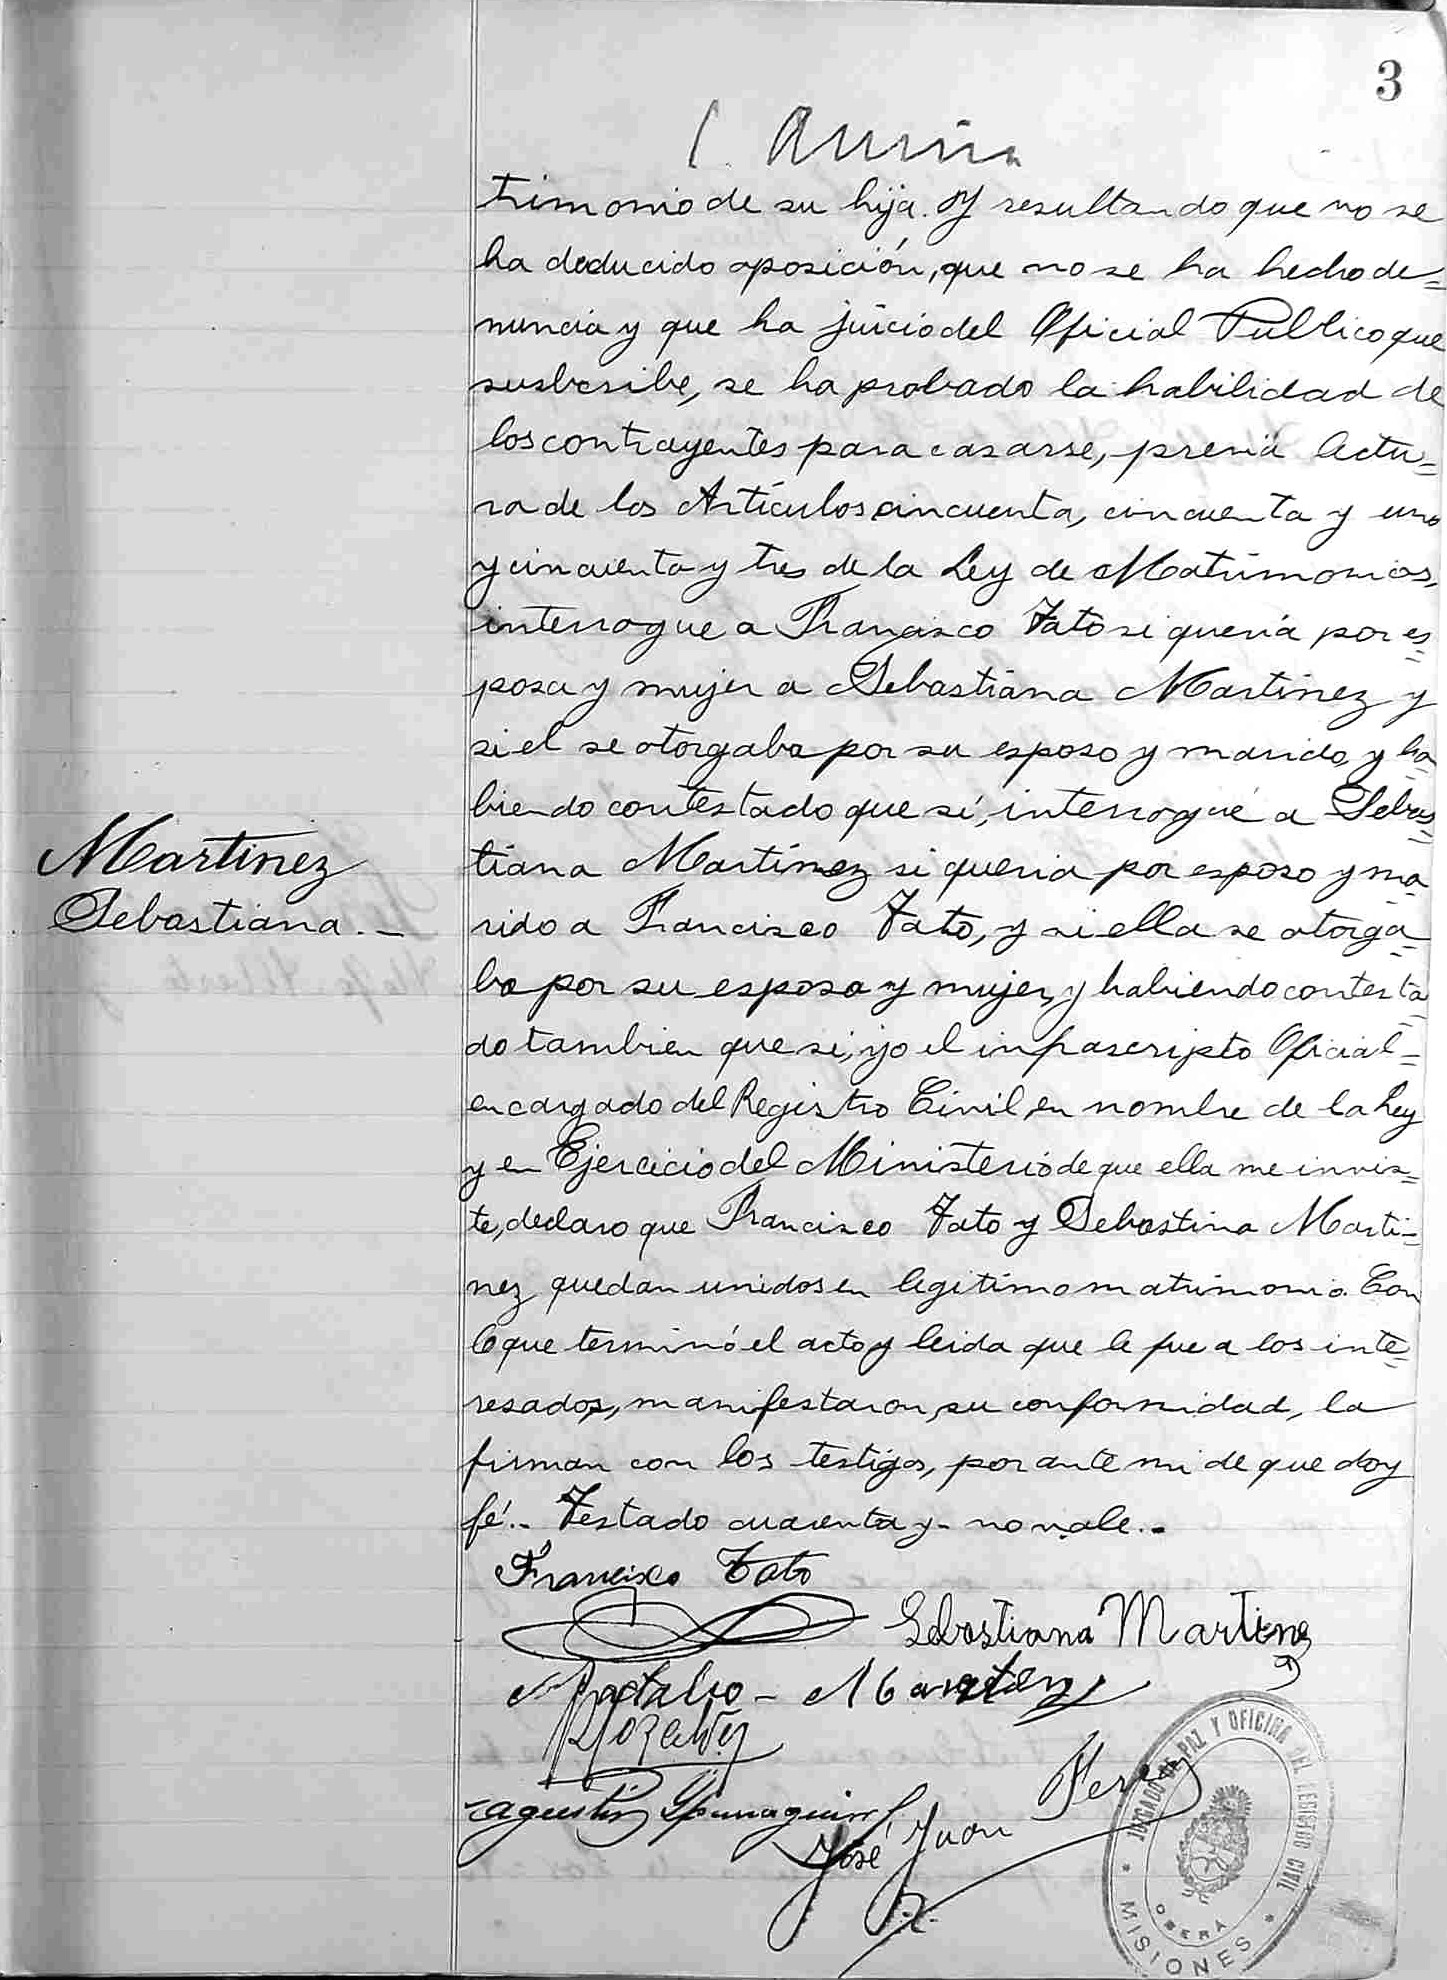 3
trimonio de su hija. Y resultando que no se
ha deducido oposición, que no se ha hecho de=
nuncia y que ha juicio del Oficial Publico que
susbcribe, se ha probado la habilidad de
los contrayentes para casarse, previa lectu=
ra de los Artículos cincuenta, cincuenta y uno
y cincuenta y tres de la Ley de Matrimonios,
interrogue a Francisco Tato si quería por es=
posa y mujer a Sebastiana Martinez y
si el se otorgaba por su esposo y marido, y ha=
biendo contestado que sí, interrogué a Sebas=
Martinez
Sebastiana.-
tiana Martínez si queria por esposo y ma=
rido a Francisco Tato, y si ella se otorga=
ba por su esposa y mujer, y habiendo contesta=
do tambien que si, yo el infrascripto Oficial=
encargado del Registro Civil, en nombre de la Ley
y en Ejercicio del Ministerio de que ella me invis=
te, declaro que Francisco Tato y Sebastina Marti=
nez quedan unidos en legitimo matrimonio. Con
lo que terminó el acto y leida que le fue a los inte=
resados, manifestaron su conformidad, la
firman con los testigos, por ante mi de que doy
fé.- Testado cuarenta y- no vale.-
Francisco Tato
Sebastiana Martinez
José Juan
JUZGADO DE PAZ Y OFICINA DEL REGISTRO CIVIL
OBERA
* MISIONES *